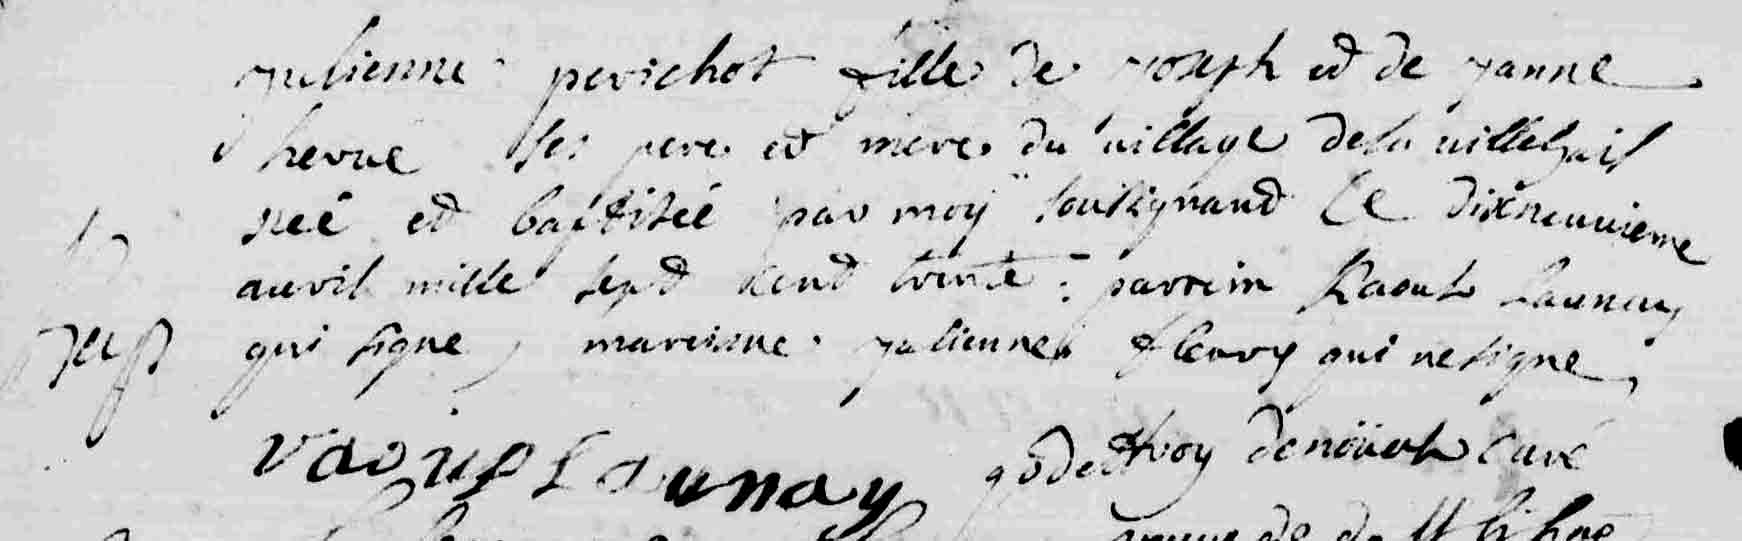 yulienne perichot fille de yoseph et de yanne
hervé ses pere et mere du village de la
neé et baptisée par moy soussignand le dixneuvieme
auvril mille sept cent trente : parrein Raoul Launay
qui signe, mareinne yulienne fleury qui ne signe,
raoul Launay godeffroy denoüal curé